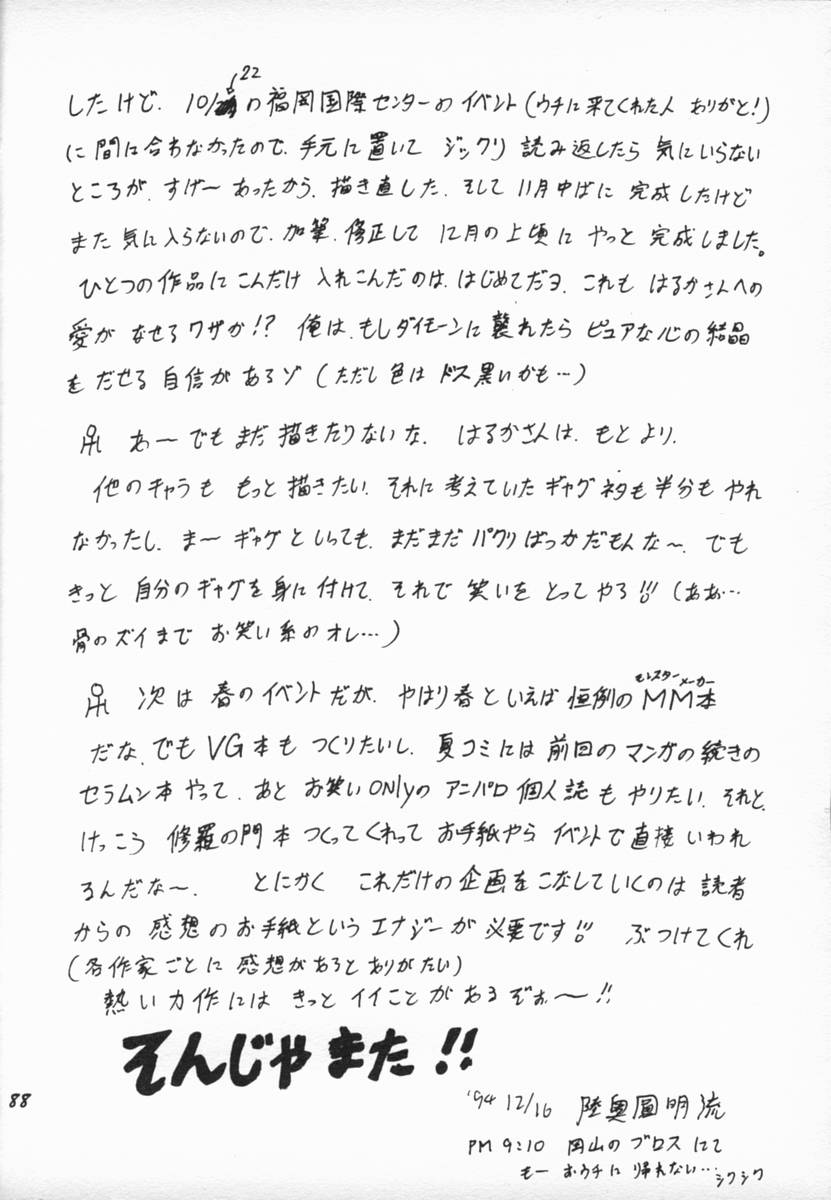 22
したけど、10/ の福岡国際センターのイベント(ウチに来てくれた人 ありがと!)
に間に合わなかったので、手元に置いて ジックリ 読み返したら 気にいらない
ところが、すげー あったから、描き直した、そして 11月中ばに 完成したけど
また 気に入らないので、加筆、修正して 12月の上頃に やっと 完成しました。
ひとつの作品にこんだけ 入れこんだのは、はじめてだヨ、これも はるかさんへの
愛が なせるワザか!? 俺は、もしダイモーンに襲れたら ピュアな心の結晶
を だせる 自信があるゾ(ただし色は ドス黒いかも…)
あーでもまだ描きたりないな、はるかさんは、もとより、
他のキャラも もっと描きたい、それに考えていたギャグネタも半分も やれ
なかったし、まー ギャグといっても、まだまだパクリばっかだもんな〜、でも
きっと 自分のギャグを身に付けて、それで 笑いを とってやる!!(ああ…
骨のズイまで お笑い系のオレ…)
モンスターメーカー
次は 春のイベントだが、やはり春といえば 恒例のMM本
だな、でも VG本も つくりたいし、夏コミには 前回のマンガの続きの
セラムン本 やって、あと お笑いonlyの アニパロ個人誌も やりたい、それと、
けっこう 修羅の門本 つくってくれって お手紙やら イベントで直接 いわれ
るんだな〜、 とにかく これだけの企画をこなしていくのは 読者
からの 感想のお手紙という エナジーが 必要です!! ぶつけてくれ
(各作家ごとに 感想があるとありがたい)
熱い力作には きっと イイことが あるぞぉ〜!!
そんじゃ また!!
88
'94 12/16 陸奥圓明流
PM 9:10 岡山のブロスにて
もー おウチに 帰れない… シクシク